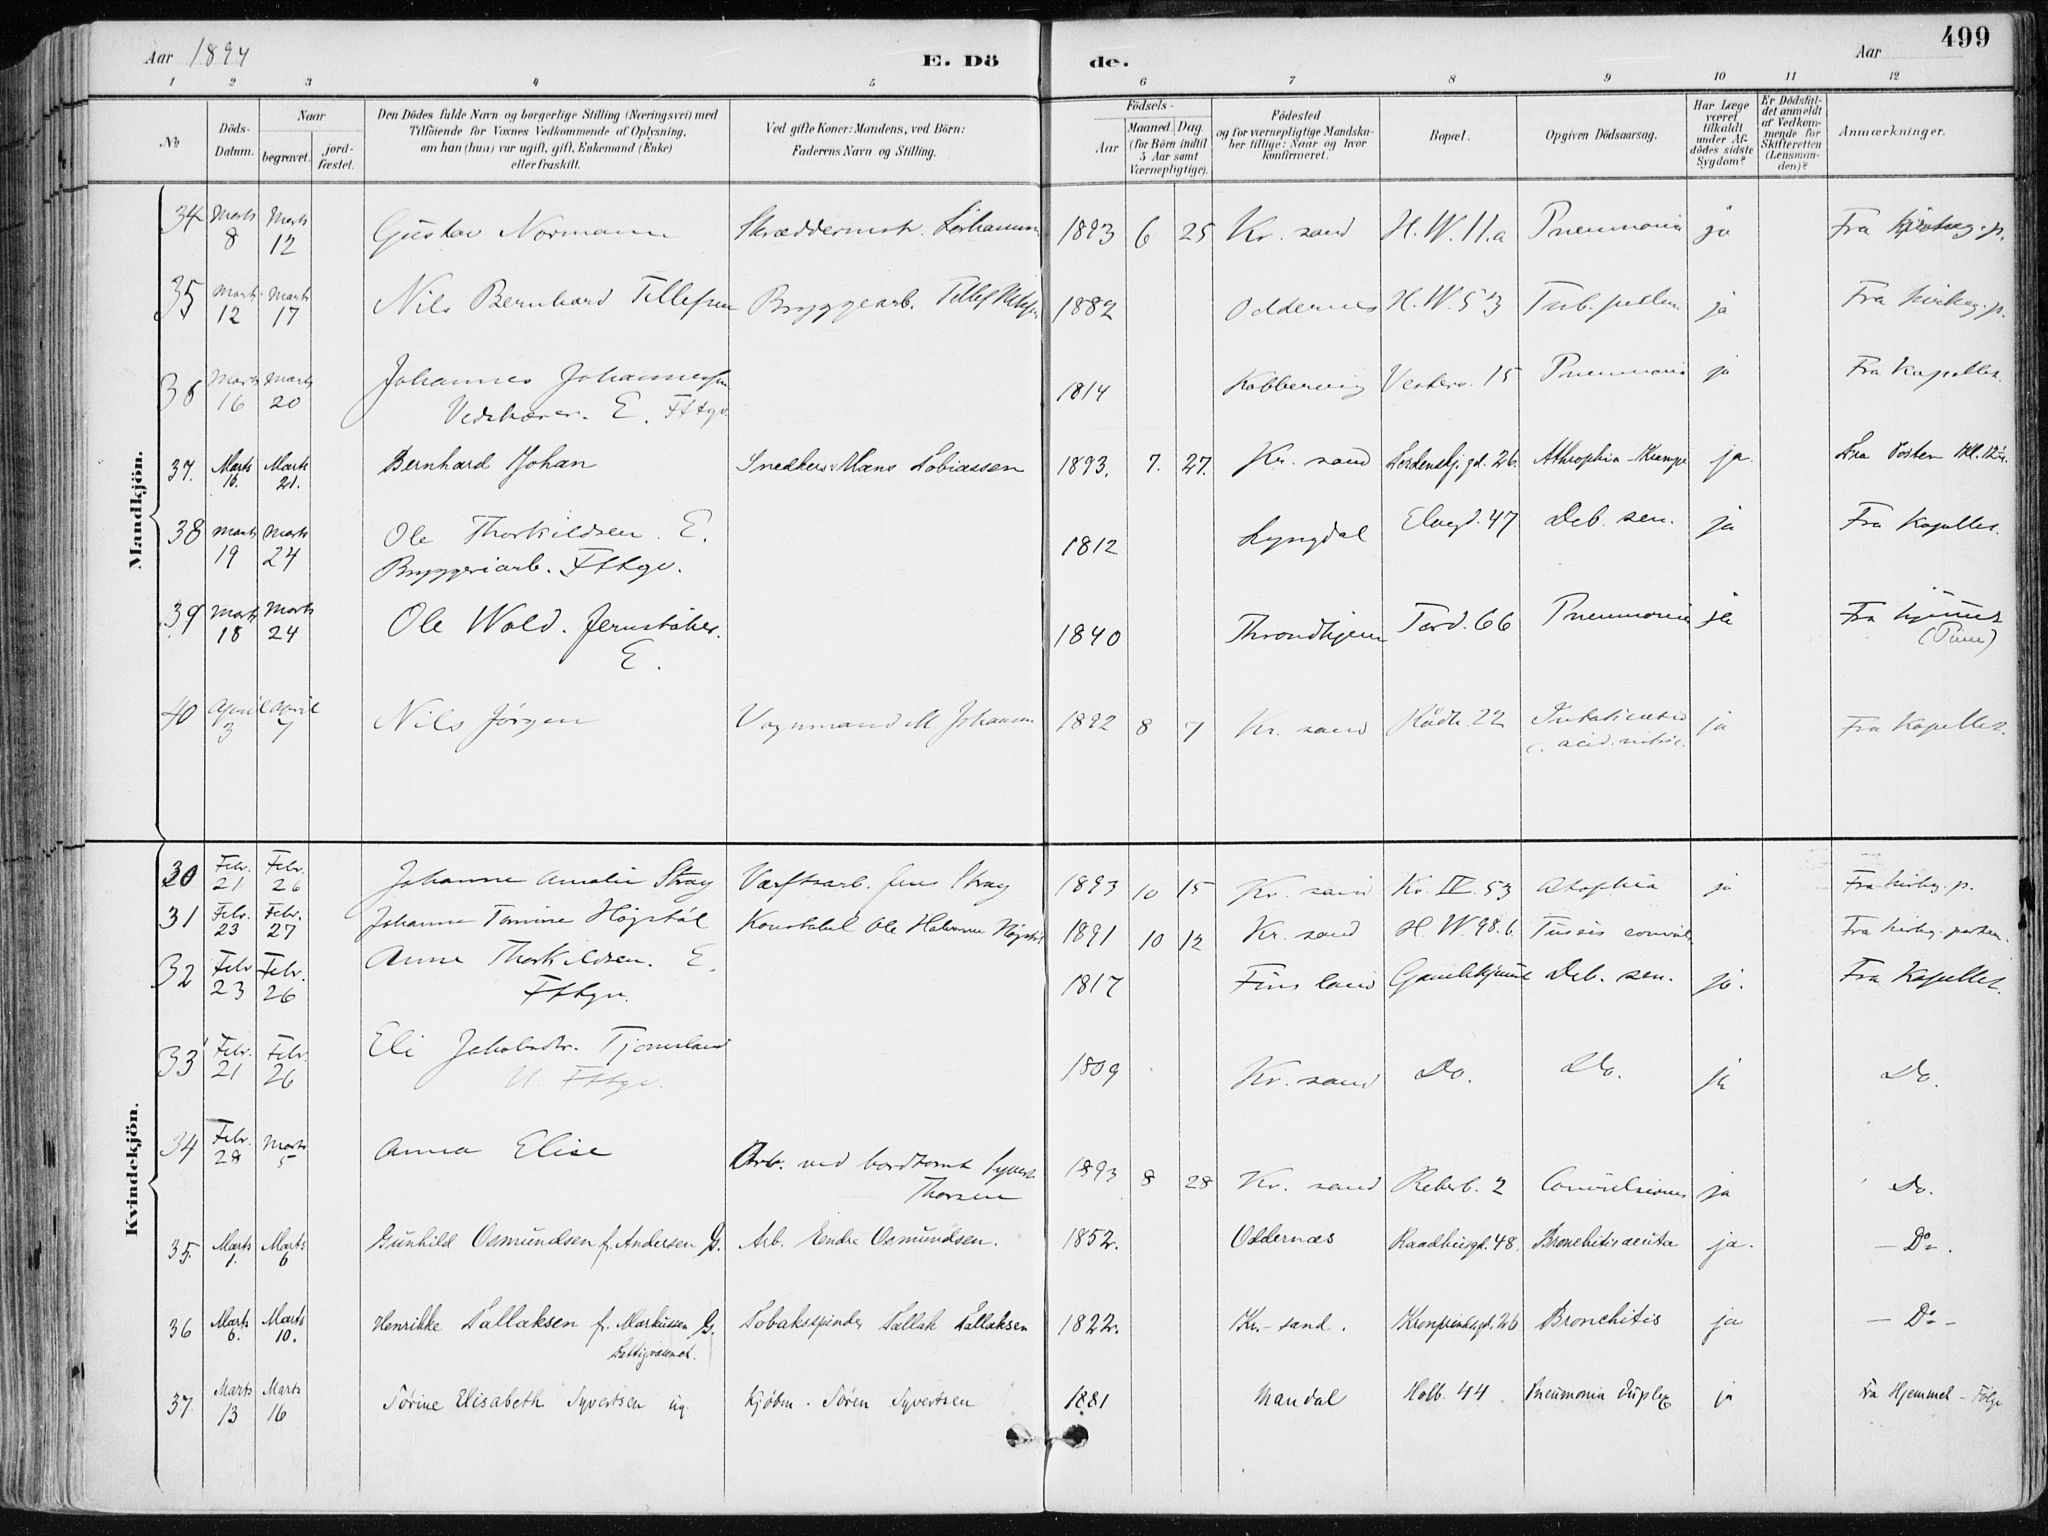 Aar 1894 E. Dö de. Aar 499
1 2 3 4 5 6 7 8 9 10 11 12
No Döds-Datum. Naar begravet. jord-fæstet. Den Dödes fulde Navn og borgerlige Stilling (Næringsvei) med Tilföiende for Voxnes Vedkommende af Oplysning, om han (hun) var ugift, gift, Enkemand (Enke) eller fraskilt. Ved gifte Koner: Mandens, ved Börn: Faderens Navn og Stilling. Födsels- Aar Maaned. Dag. (for Börn indtil 5 Aar samt Værnepligtige). Födested og for værnepligtige Mandskaber tillige: Naar og hvor konfirmeret. Bopæl. Opgiven Dödsaarsag. Har Læge været tilkaldt under Afdödes sidste Sygdom? Er Dödsfaldet anmeldt af Vedkommende for Skifteretten (Lensmanden)? Anmærkninger.
Mandkjön.
34 Marts 8 Marts 12 Gustav Normann Skræddermstr. 1893 6 25 Kr. sand H. W. 11.a Pneumonia ja Fra Kirkeg. p.
35 Marts 12 Marts 17 Nils Bernhard Tellefsen Bryggearb. Tellef 1882 Oddernes H. W. 53 Tub. pulm. ja Fra Kirkeg. p.
36 Marts 16 Marts 20 Johannes Johannessen 1814 Kobbervig Vesterv. 15 Pneumonia ja Fra Kapellet.
Vedskærer. E. Fttgv.
37. Marts 16. Marts 21. Bernhard Johan Snedker Mans Tobiassen 1893. 7. 27. Kr. sand Tordenskj. gd. 26. Athrophia - Krampe ja. Fra Porten Kl. 12½
38 Marts 19 Marts 24 Ole Thorkildsen. E. 1812 Lyngdal Elvegd. 47 Deb. sen. ja Fra Kapellet.
Bryggeriarb. Fttgv.
39 Marts 18 Marts 24 Ole Wold. Jernstöber. 1840 Throndhjem Tord. 66 Pneumonia ja Fra Hjemmet
E.
40 April 3 April 7 Nils Jörgen Vognmand M Johansen 1892 8 7 Kr. sand Rådh. 22 Intoxicatio ja Fra Kapellet.
c. acid. nitric.
Kvindekjön.
30 Febr. 21 Febr. 26 Johanne Amalie Stray Værftsarb. Jens Stray 1893 10 15 Kr. sand Kr. IV. 53 Atrophia ja Fra Kirkeg. p.
31 Febr. 23 Febr. 27 Johanne Tomine Högstöl Konstabel Ole Halvorsen Högstöl 1891 10 12 Kr. sand H. W. 98. b. Tussis convuls. Fra Kirkeg. porten.
32 Febr. 23 Febr. 26 Anne Thorkildsen. E. 1817 Finsland Gamlehjemmet Deb. sen. ja. Fra Kapellet.
Fttgv.
33 Febr. 21 Febr. 26 Eli Jakobsdtr. Tjomsland 1809 Kr. sand Do. Do. ja Do.
U. Fttgv.
34 Febr. 28 Marts 5 Anna Elise Arb. ved bordtomt Syvert 1893 8 28 Kr. sand Reberb. 2 Convulsiones ja Do.
Thorsen
35. Marts 1. Marts 6 Gunhild Osmundsen f. Andersen G. Arb. Endre Osmundsen. 1852. Oddernæs Raadhusgd. 48. Bronchitis acuta ja. - Do -.
36 Marts 6. Marts 10. Henrikke Tallaksen f. Markussen G. Tobakspinder Tallak Tallaksen 1822. Kr. - sand. Kronprindsgd. 26 Bronchitis ja - Do -
Fattigvæsenet.
37. Marts 13 Marts 16 Törine Elisabeth Syvertsen ug. Kjöbm. Sören Syvertsen 1881 Mandal Holb. 44 Pneumonia duplex ja Fra Hjemmet - Fölge